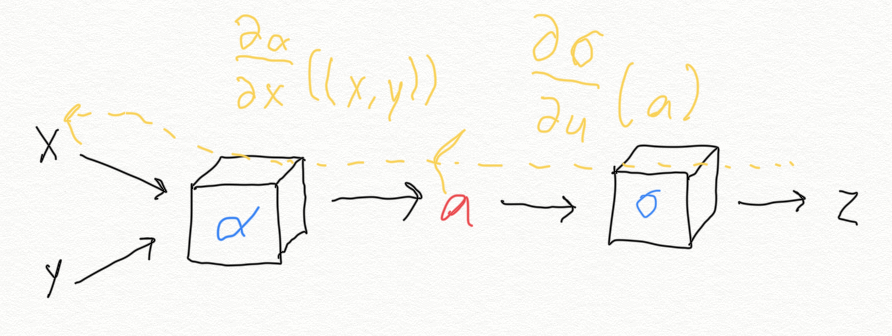 ∂α/∂x ((x,y)) ∂σ/∂u (a)
X
α a σ z
y